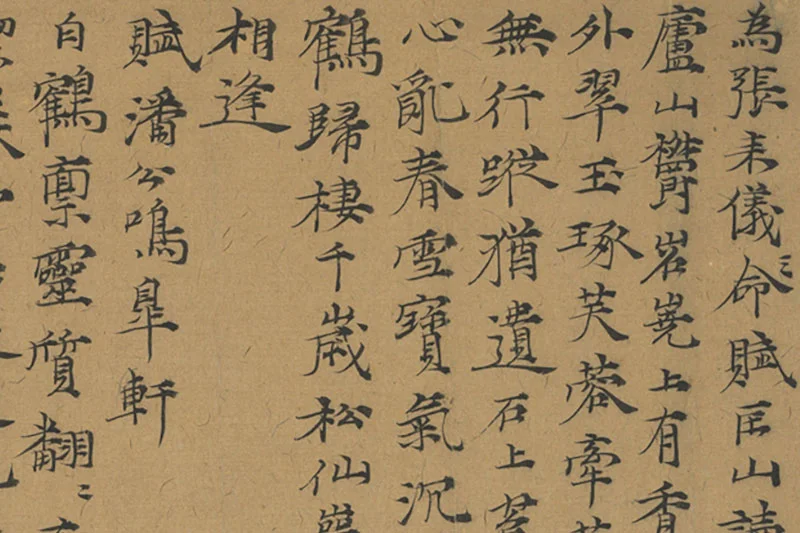 為張来儀命賦匡山讀
廬山欝岧嶤上有香
外翠玉琢芙蓉牽
無行蹤猶遺石上
心亂春雪寶氣沉
鶴歸棲千歲松仙
相逢
賦潘公鳴皐軒
自鶴禀靈質翻〻